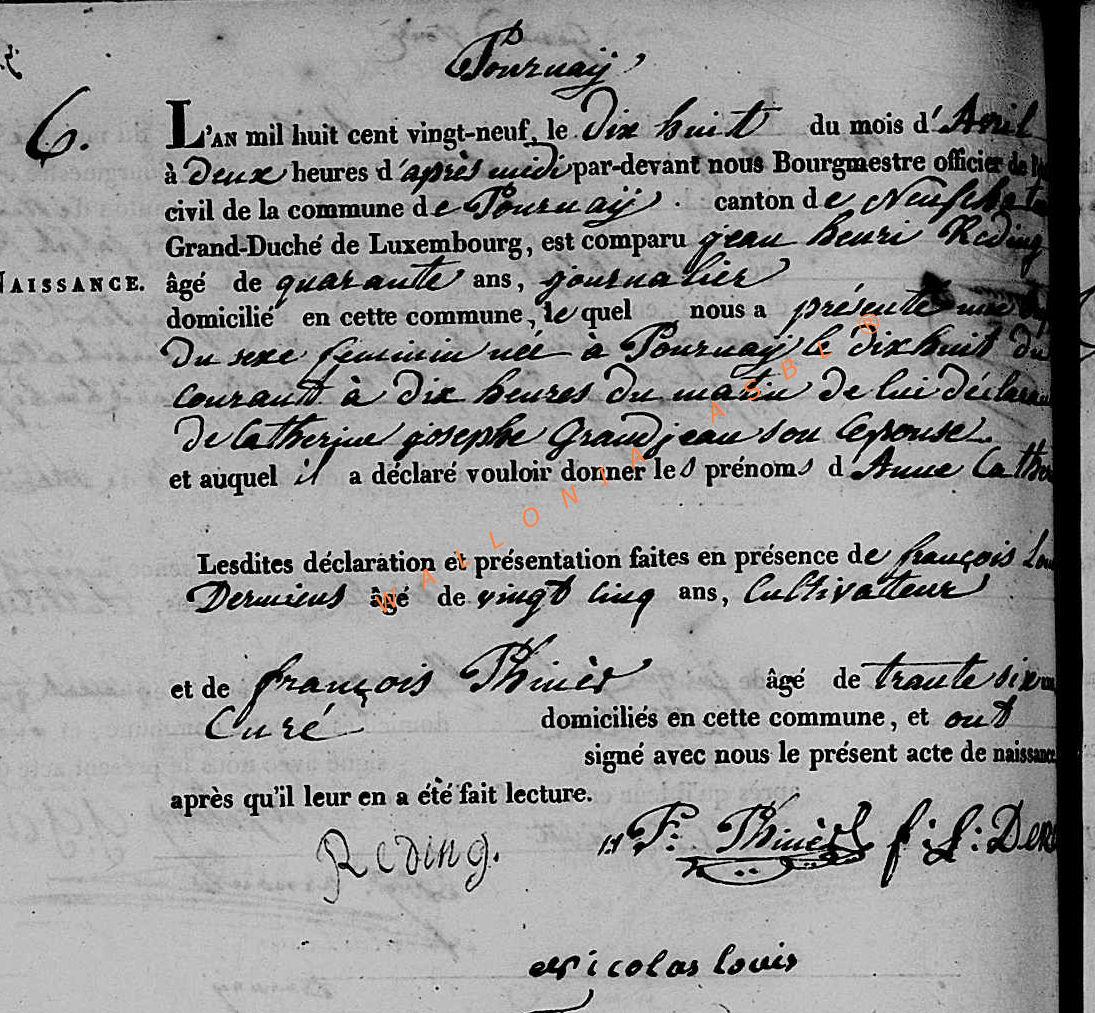 Tournaÿ
6.
L'AN mil huit cent vingt-neuf, le dix huit du mois d'Avril
à deux heures d'après midi par-devant nous Bourgmestre officier de l'
civil de la commune de Tournaÿ. canton de Neufchate
Grand-Duché de Luxembourg, est comparu jean henri Reding
NAISSANCE. âgé de quarante ans, journalier
domicilié en cette commune, lequel nous a présenté une
du sexe feminin née à Tournaÿ le dixhuit du
courant à dix heures du matin de lui déclaran
de Catherine josephe Grandjean son Epouse
et auquel il a déclaré vouloir donner les prénoms d Anne Cather
Lesdites déclaration et présentation faites en présence de françois Lou
Derniens âgé de vingt cinq ans, Cultivatteur
et de françois Thinès âgé de trante six
Curé domiciliés en cette commune, et ont
signé avec nous le présent acte de naissance
après qu'il leur en a été fait lecture.
Reding. F: Thinès f: L: Der
Nicolas louis
WALLONIA ASBL ®